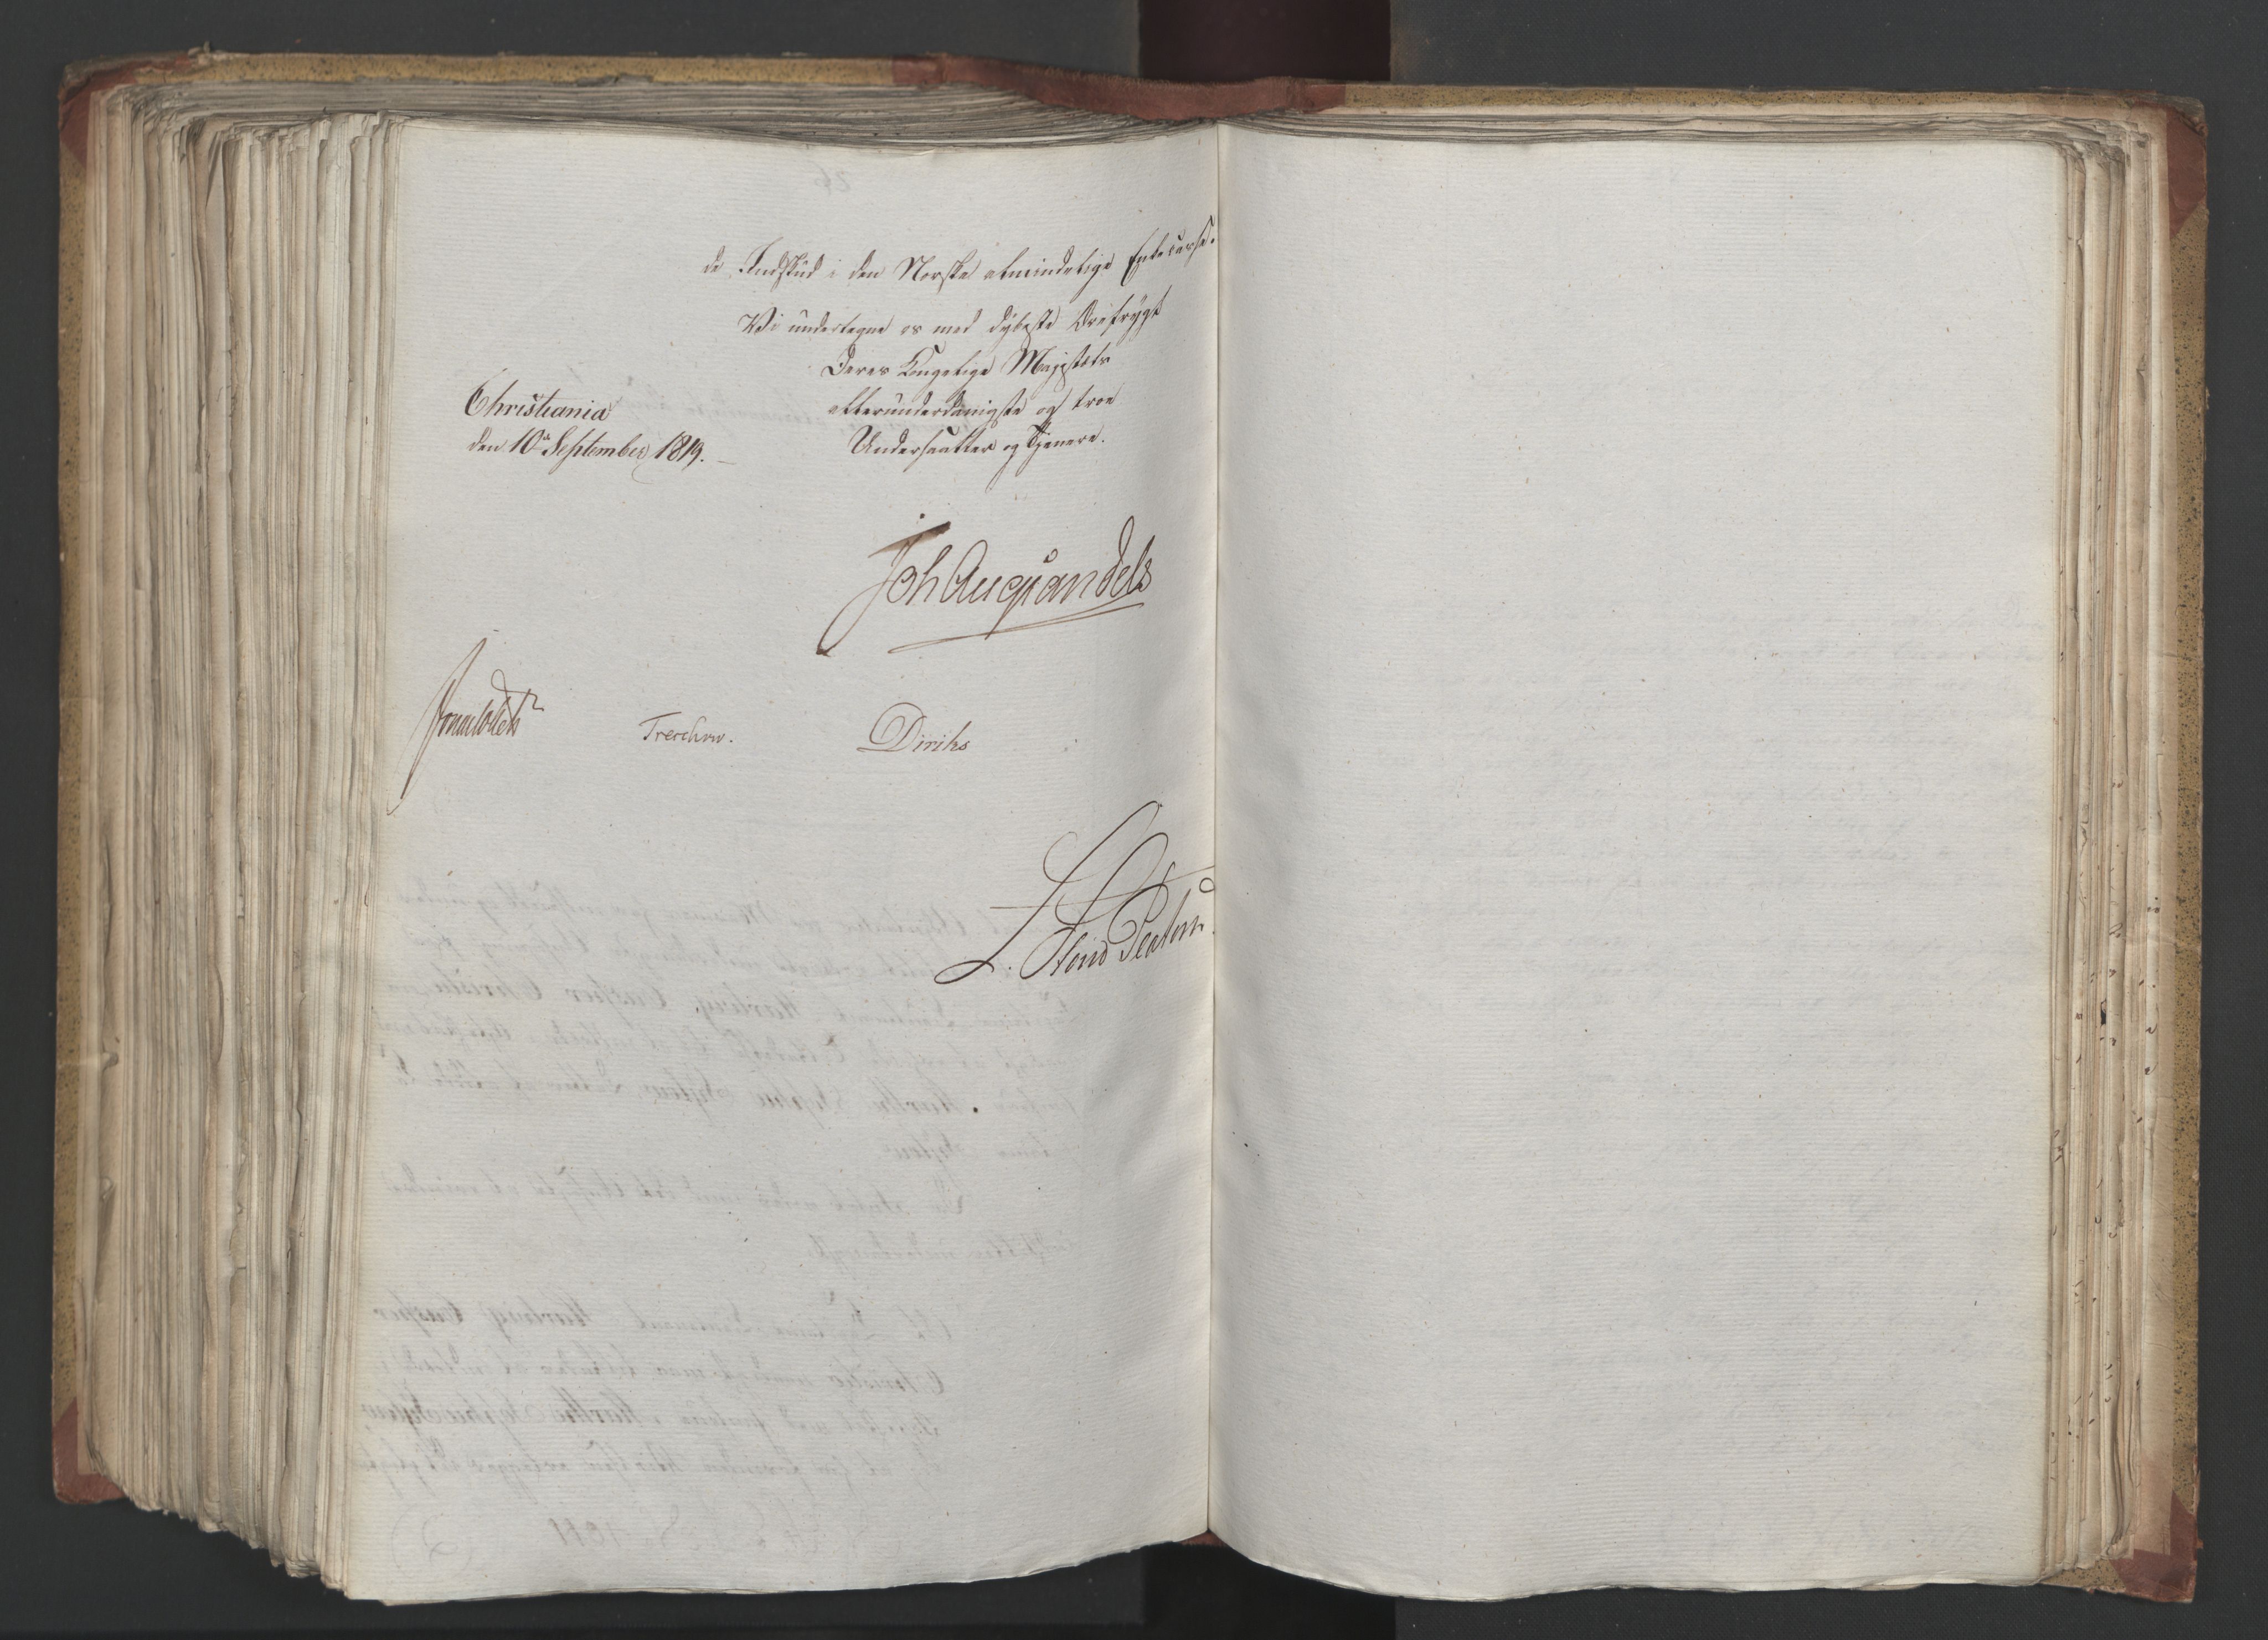 de Indskud i den Norske almindelige Enkecasse.
Vi undertegne os med dybeste Ærefrygt
Deres Kongelige Majestæts
allerunderdanigste og troe
Undersaatter og Tjenere.
Christiania
den 10de September 1819.
Joh Aug Sandels
Sommerhielm
Treschow.
Diriks
L. Stoud Platou